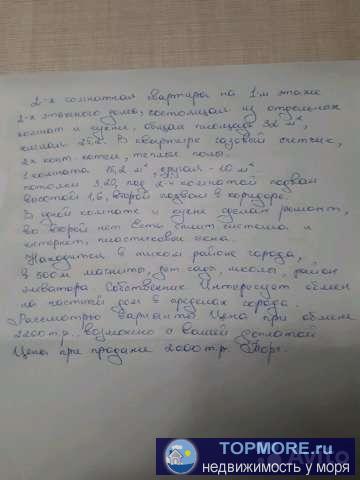 2-х комнатная квартира на 1-м этаже
2-х этажного дома, состоящая из отдельных
комнат и кухни, общая площадь 32 м²,
жилая 25,2. В квартире газовый счетчик,
2х конт. котел, теплые полы.
1 комната 15,2 м², другая - 10 м²
потолки 3,20, под 2-й комнатой подвал
высотой 1,6, второй подвал в коридоре.
В одной комнате и кухне сделан ремонт,
во второй нет. Есть сплит-система и
интернет, пластиковые окна.
Находится в тихом районе города,
в 500м магнит, дет. сад, школы, район
элеватора. Собственник. Интересует обмен
на частный дом в пределах города.
Рассмотрю варианты. Цена при обмене
2200 т.р., возможно с вашей доплатой
Цена при продаже 2000 т.р. Торг.
Avito
TOPMORE.ru
недвижимость у моря